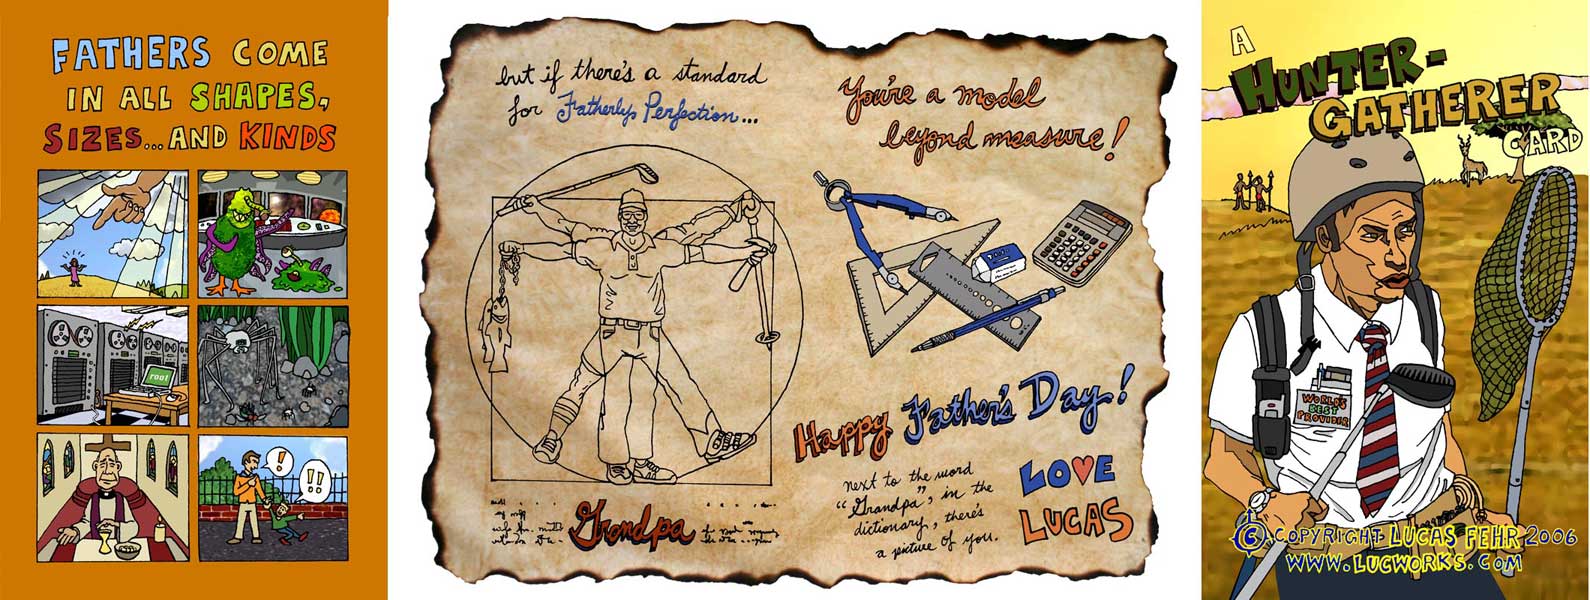 FATHERS COME
IN ALL SHAPES,
SIZES...AND KINDS
root
!
!!
but if there's a standard
for Fatherly Perfection...
You're a model
beyond measure!
Grandpa
Happy Father's Day!
next to the word
"Grandpa", in the
dictionary, there's
a picture of you.
LOVE
LUCAS
A
HUNTER-
GATHERER
CARD
WORLD'S
BEST
PROVIDER
© COPYRIGHT LUCAS FEHR 2006
WWW.LUCWORKS.COM